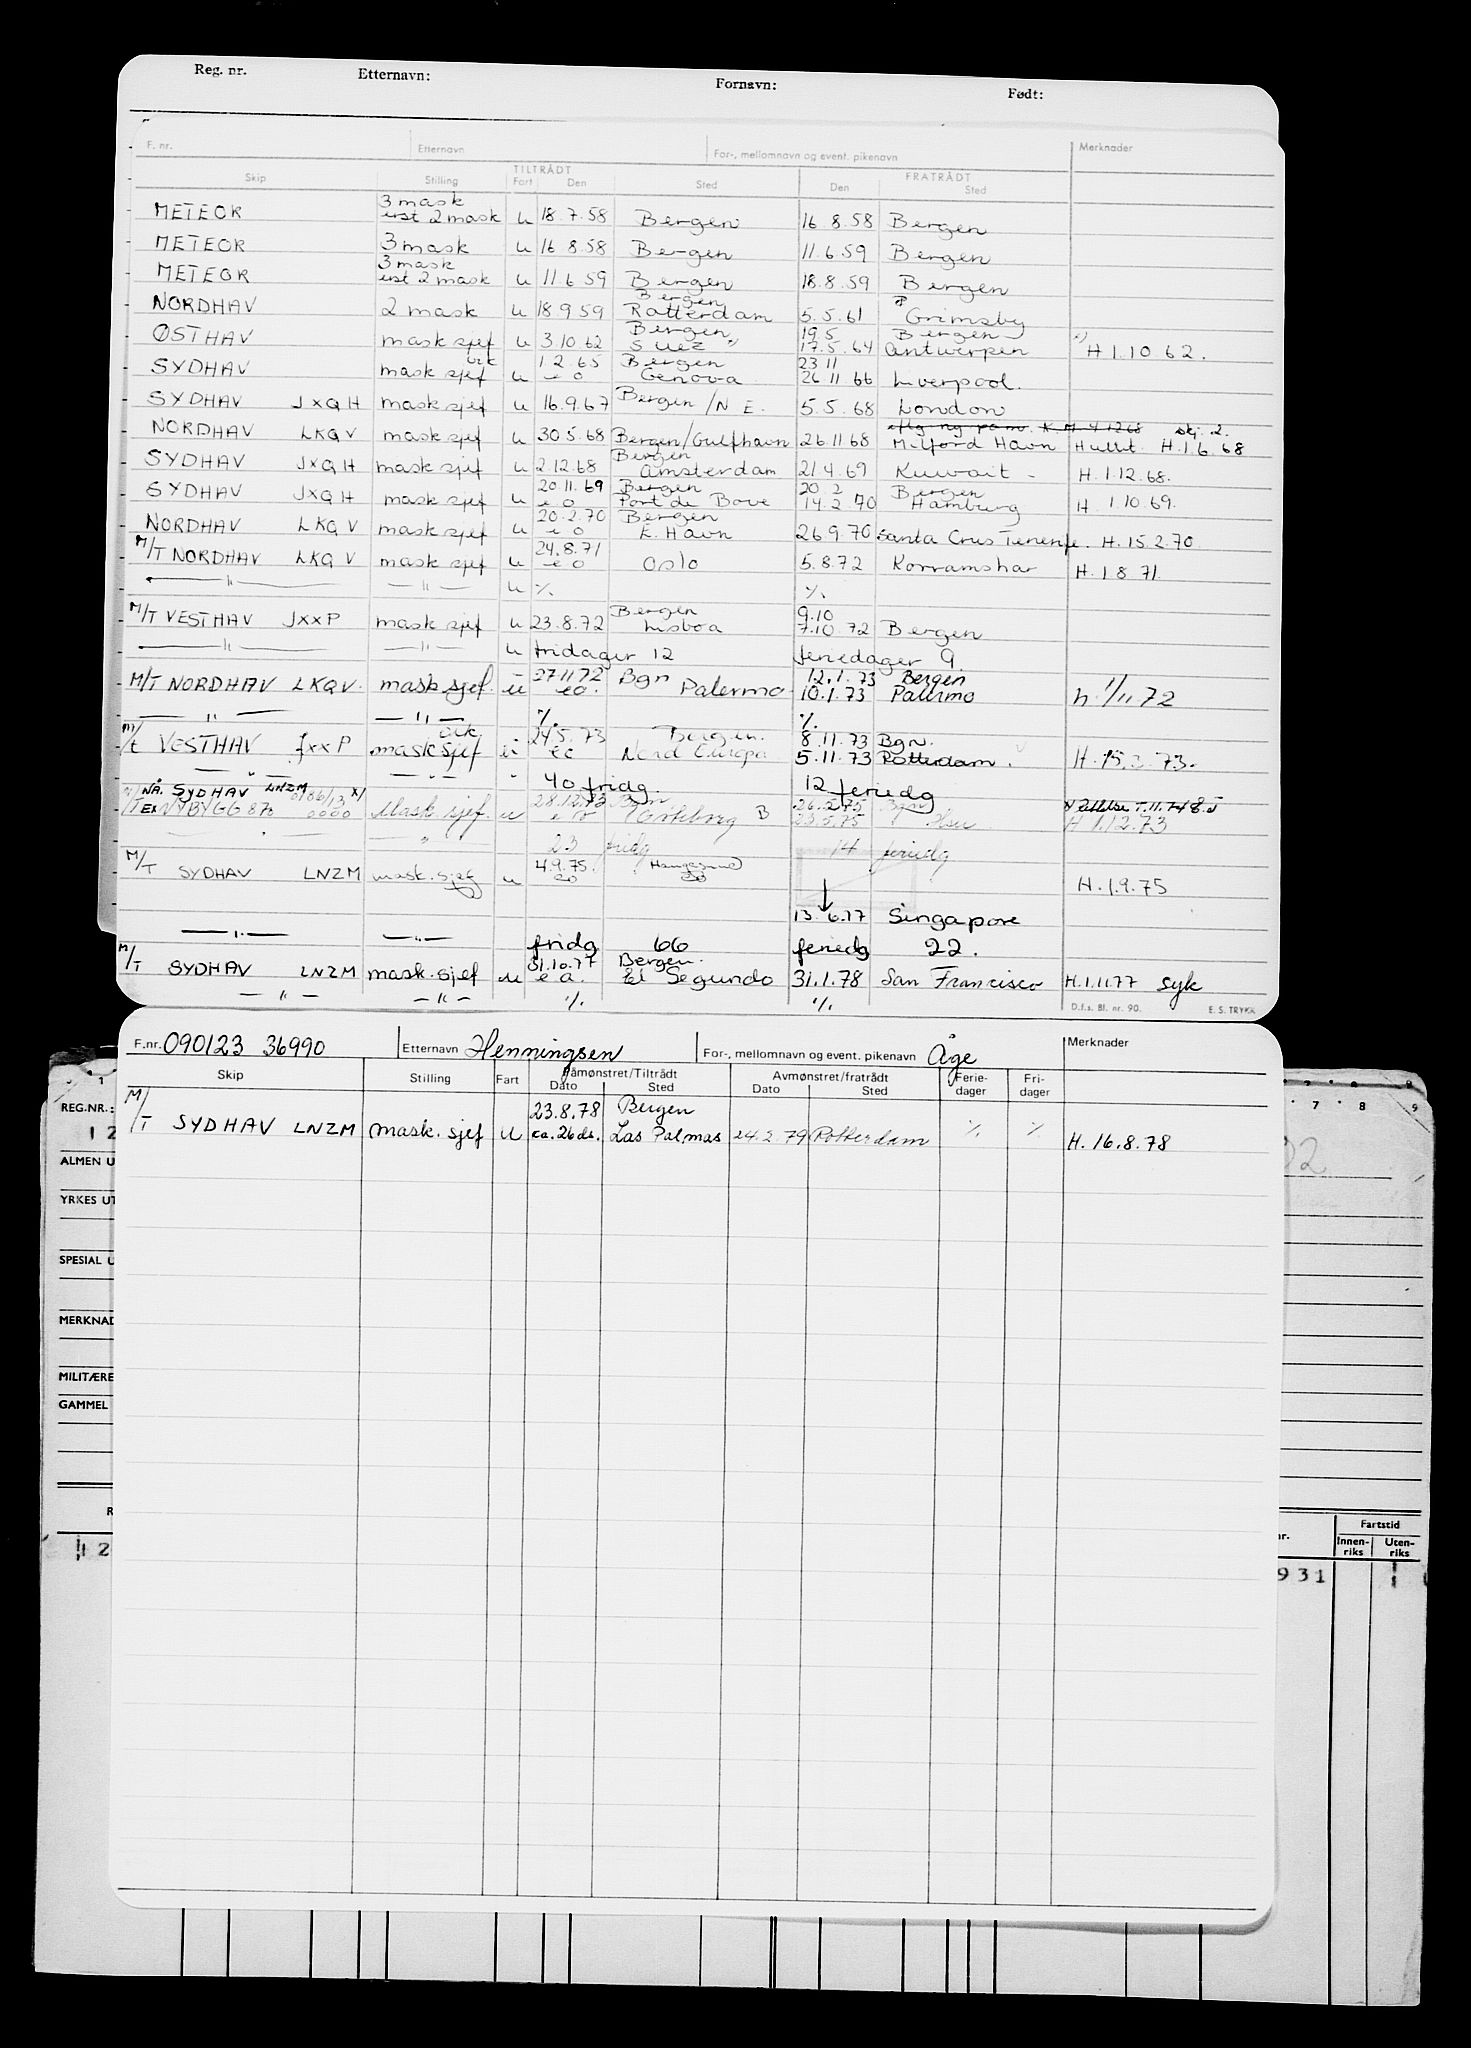 Reg. nr. Etternavn: Fornavn: Født:
F. nr. Etternavn For-, mellomnavn og event. pikenavn Merknader
TILTRÅDT FRATRÅDT
Skip Stilling Fart Den Sted Den Sted
3 mask
METEOR erst 2 mask u 18.7.58 Bergen 16 8.58 Bergen
METEOR 3 mask u 16 8.58 Bergen 11.6.59 Bergen
3 mask
METEOR erst 2 mask u 11 6 59 Bergen 18.8.59 Bergen
Bergen
NORDHAV 2 mask u 18 9 59 Rotterdam 5.5.61 Grimsby
Bergen 19.5 Bergen
ØSTHAV mask sjef u 3.10.62 Suez 17.5.64 Antwerpen H 1.10 62.
vik 1 2.65 Bergen 23 11
SYDHAV mask sjef u e o Genova 26 11 66 Liverpool.
SYDHAV JXQH mask sjef u 16.9.67 Bergen/N E. 5.5.68 London
NORDHAV LKQV mask sjef u 30.5.68 Bergen/Gulfhavn 26.11.68 Milford Havn Hullt. H.1.6.68
Bergen
SYDHAV JXQH mask sjef u 2.12.68 Amsterdam 21 4.69 Kuwait - H. 1.12.68.
20 11.69 Bergen 20 2 Bergen
SYDHAV JXQH mask sjef u e o Port de Bove 14 2 70 Hamburg H 1.10 69.
20.2.70 Bergen
NORDHAV LKQV mask sjef u e o E. Havn 26.9.70 Santa Crus Tenerife. H. 15.2.70
24.8.71
M/T NORDHAV LKQV mask sjef u e o Oslo 5.8.72 Korramshar H. 1 8 71.
— " — — " — u ./. ./.
Bergen 9.10
M/T VESTHAV JXXP mask sjef u 23.8.72 Lisboa 7.10.72 Bergen
— " — — " — u fridager 12 feriedager 9.
27 11 72 Bgn 12.1.73 Bergen
M/T NORDHAV LKQV. mask sjef. u eo. Palermo 10.1.73 Palermo h. 1/11 72
— " — — " — ./. ./.
vik 24.5.73 Bergen. 8.11.73 Bgn.
M/T VESTHAV JXXP mask sjef u eo Nord Europa 5.11.73 Rotterdam. H. 15.2.73.
— " — — " — " 40 fridg. 12 feriedg
NÅ. SYDHAV LNZM 28.12.73 Bgn 26.5.75 Bgn
M/T EX NYBYGG 870 Mask sjef. u e o Göteborg B 23.5.75 H 1.12.73
— " — 23 fridg 14 feriedg
4.9.75. Haugesund
M/T SYDHAV LNZM mask. sjef u eo eo H. 1.9.75
13.6.77 Singapore
— " — — " — fridg 66 feriedg 22.
31.10.77 Bergen.
M/T SYDHAV LNZM mask. sjef u e a. El Segundo 31.1.78 San Francisco H.1.11.77 syk
— " — — " — ./. ./. D.f.s. Bl. nr. 90. E. S. TRYKK
F.nr. 090123 36990 Etternavn Henningsen For-, mellomnavn og event. pikenavn Åge Merknader
Skip Stilling Fart Påmønstret/Tiltrådt Avmønstret/fratrådt Ferie- Fri-
Dato Sted Dato Sted dager dager
23.8.78 Bergen
M/T SYDHAV LNZM mask. sjef u ca. 26 ds. Las Palmas 24.2.79 Rotterdam ./. ./. H. 16.8.78
1 7 8 9
REG.NR.:
1 2
ALMEN U
YRKES UT
SPESIAL U
MERKNAD
MILITÆRE
GAMMEL
R
nr. Fartstid
Innen-riks Uten-riks
12 931 1